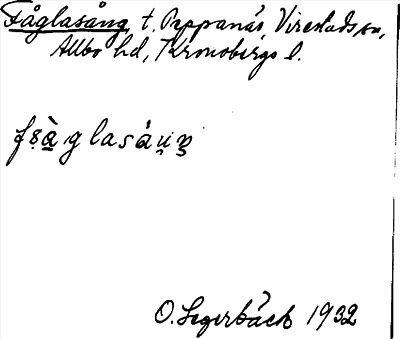 Fåglasång, t. Peppanäs, Virestads sn,
Allbo hd, Kronobergs l.
O. Segerbäck 1932